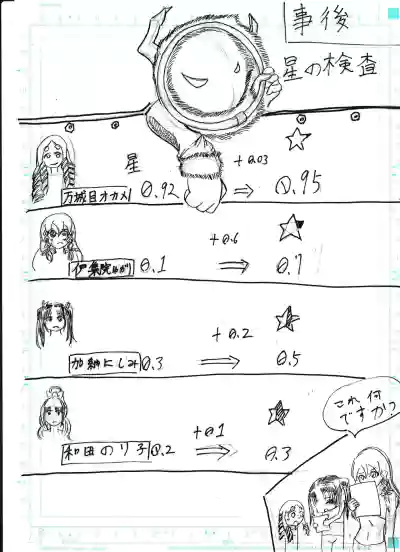 事後
星の検査
星
+0.03
万城目オカメ 0.92 ⇒ 0.95
+0.6
伊集院 0.1 ⇒ 0.7
+0.2
加納にしみ 0.3 ⇒ 0.5
+0.1
和田のり子 0.2 ⇒ 0.3
これ何
ですか?